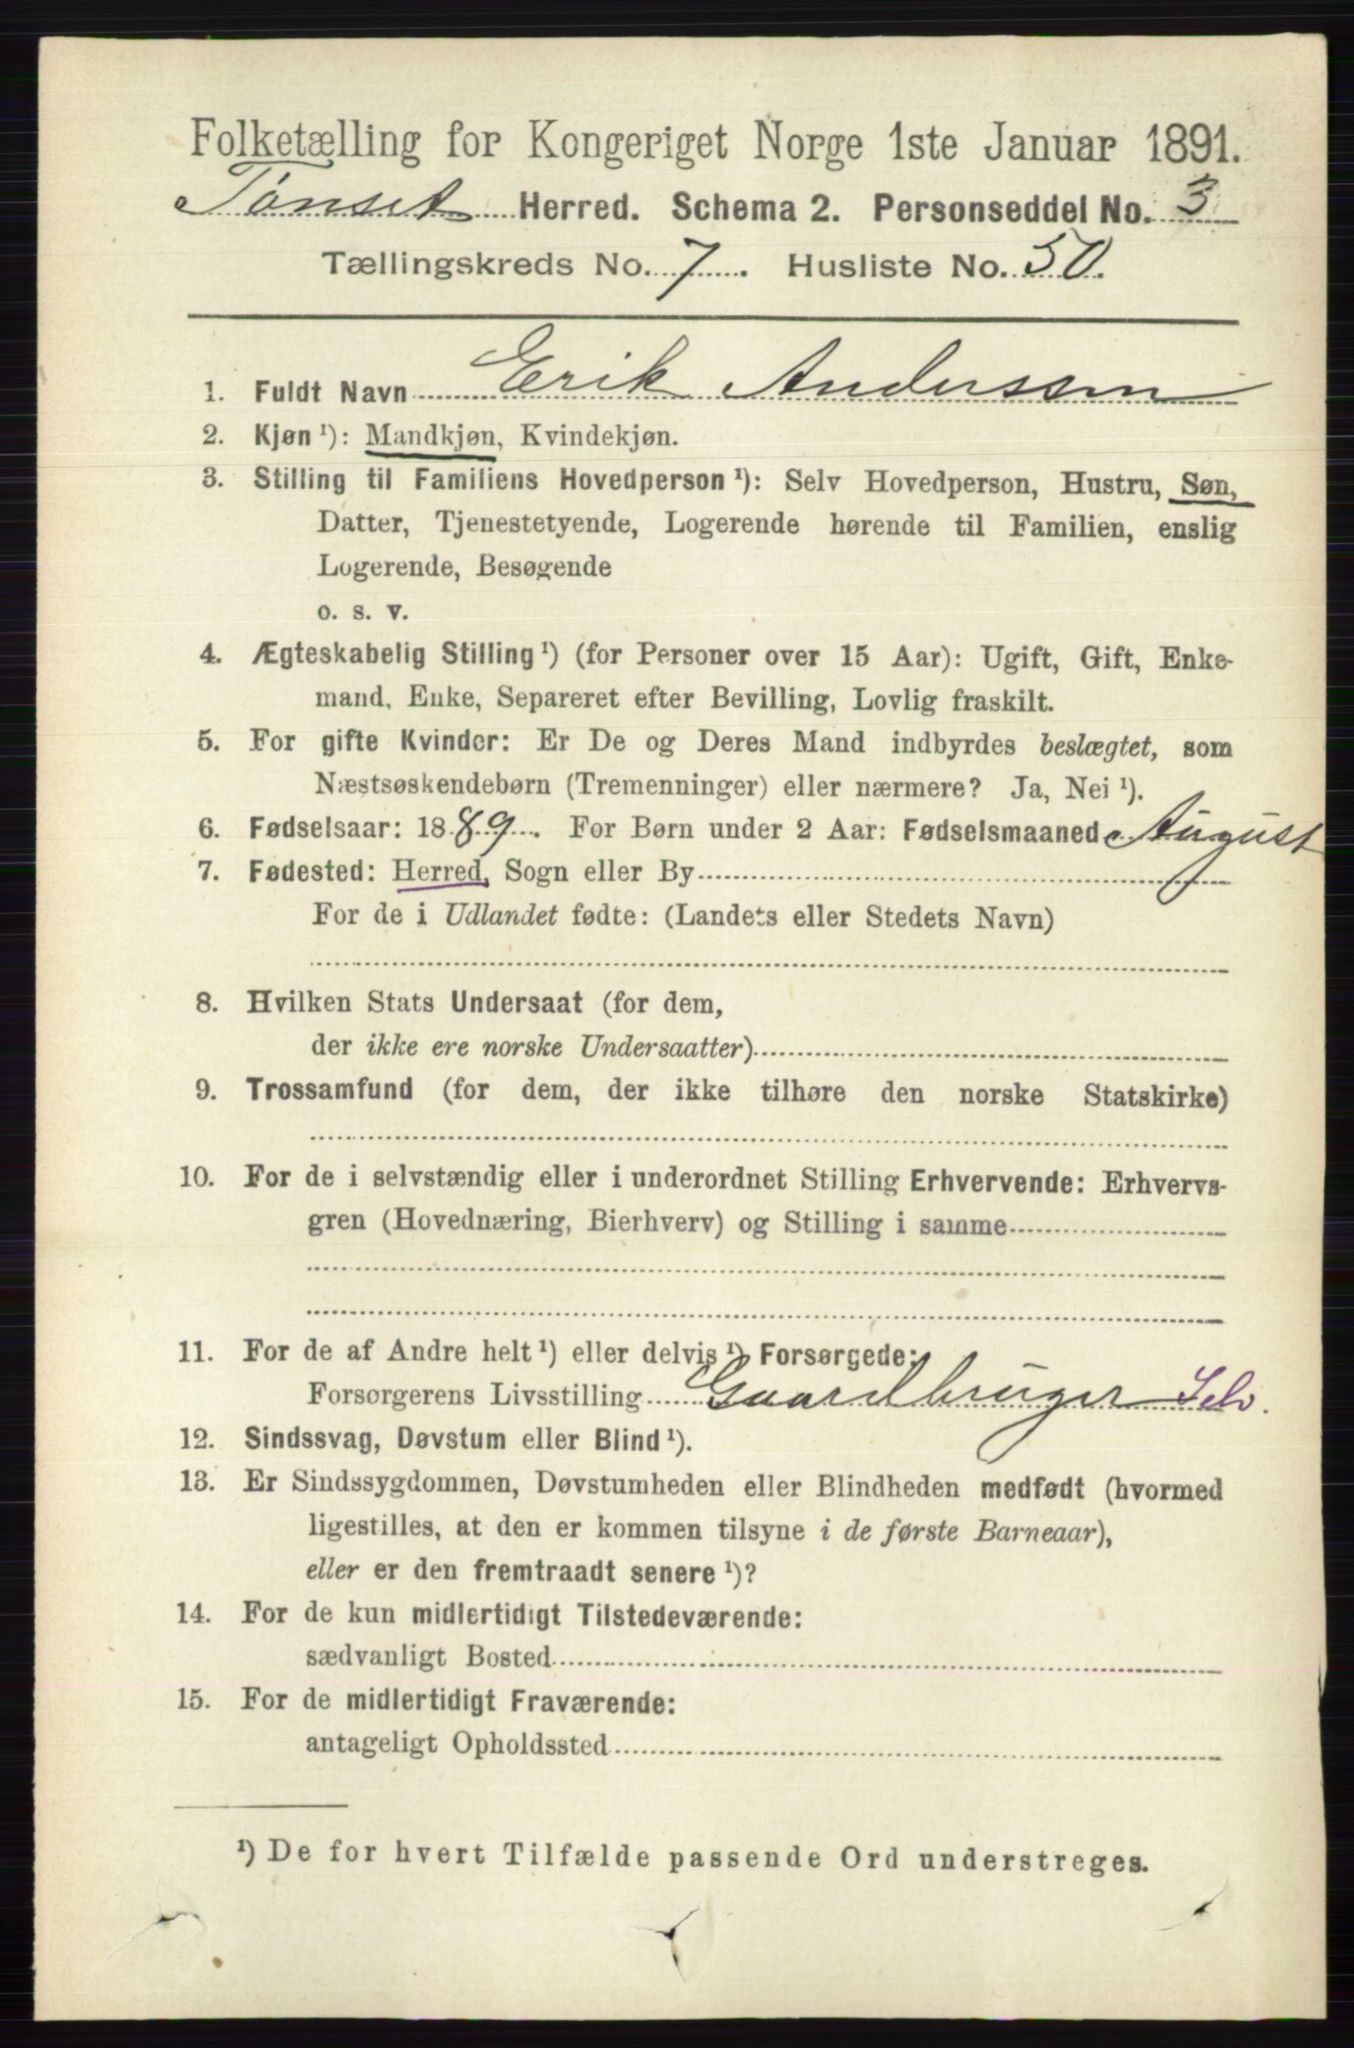 Folketælling for Kongeriget Norge 1ste Januar 1891.
Tønset Herred. Schema 2. Personseddel No. 3
Tællingskreds No. 7. Husliste No. 50.
1. Fuldt Navn Erik Anderssen
2. Kjøn ¹): Mandkjøn, Kvindekjøn.
3. Stilling til Familiens Hovedperson ¹): Selv Hovedperson, Hustru, Søn,
Datter, Tjenestetyende, Logerende hørende til Familien, enslig
Logerende, Besøgende
o. s. v.
4. Ægteskabelig Stilling ¹) (for Personer over 15 Aar): Ugift, Gift, Enke-
mand, Enke, Separeret efter Bevilling, Lovlig fraskilt.
5. For gifte Kvinder: Er De og Deres Mand indbyrdes beslægtet, som
Næstsøskendebørn (Tremenninger) eller nærmere? Ja, Nei ¹).
6. Fødselsaar: 1889. For Børn under 2 Aar: Fødselsmaaned August
7. Fødested: Herred, Sogn eller By
For de i Udlandet fødte: (Landets eller Stedets Navn)
8. Hvilken Stats Undersaat (for dem,
der ikke ere norske Undersaatter)
9. Trossamfund (for dem, der ikke tilhøre den norske Statskirke)
10. For de i selvstændig eller i underordnet Stilling Erhvervende: Erhvervs-
gren (Hovednæring, Bierhverv) og Stilling i samme
11. For de af Andre helt ¹) eller delvis ¹) Forsørgede:
Forsørgerens Livsstilling Gaardbruger Selv.
12. Sindssvag, Døvstum eller Blind ¹).
13. Er Sindssygdommen, Døvstumheden eller Blindheden medfødt (hvormed
ligestilles, at den er kommen tilsyne i de første Barneaar),
eller er den fremtraadt senere ¹)?
14. For de kun midlertidigt Tilstedeværende:
sædvanligt Bosted
15. For de midlertidigt Fraværende:
antageligt Opholdssted
¹) De for hvert Tilfælde passende Ord understreges.